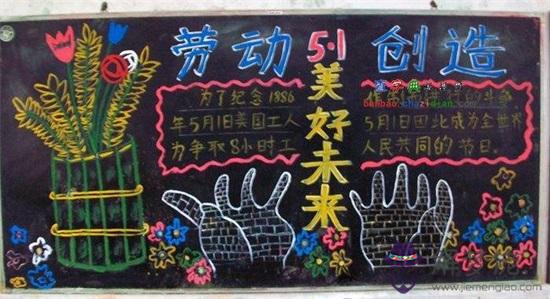 劳动 5·1 创造
美好未来
为了纪念1886
年5月1日美国工人
为争取8小时工
5月1日因此成为全世界
人民共同的节日。
banbao.chazidian.com
www.jiemengiao.com